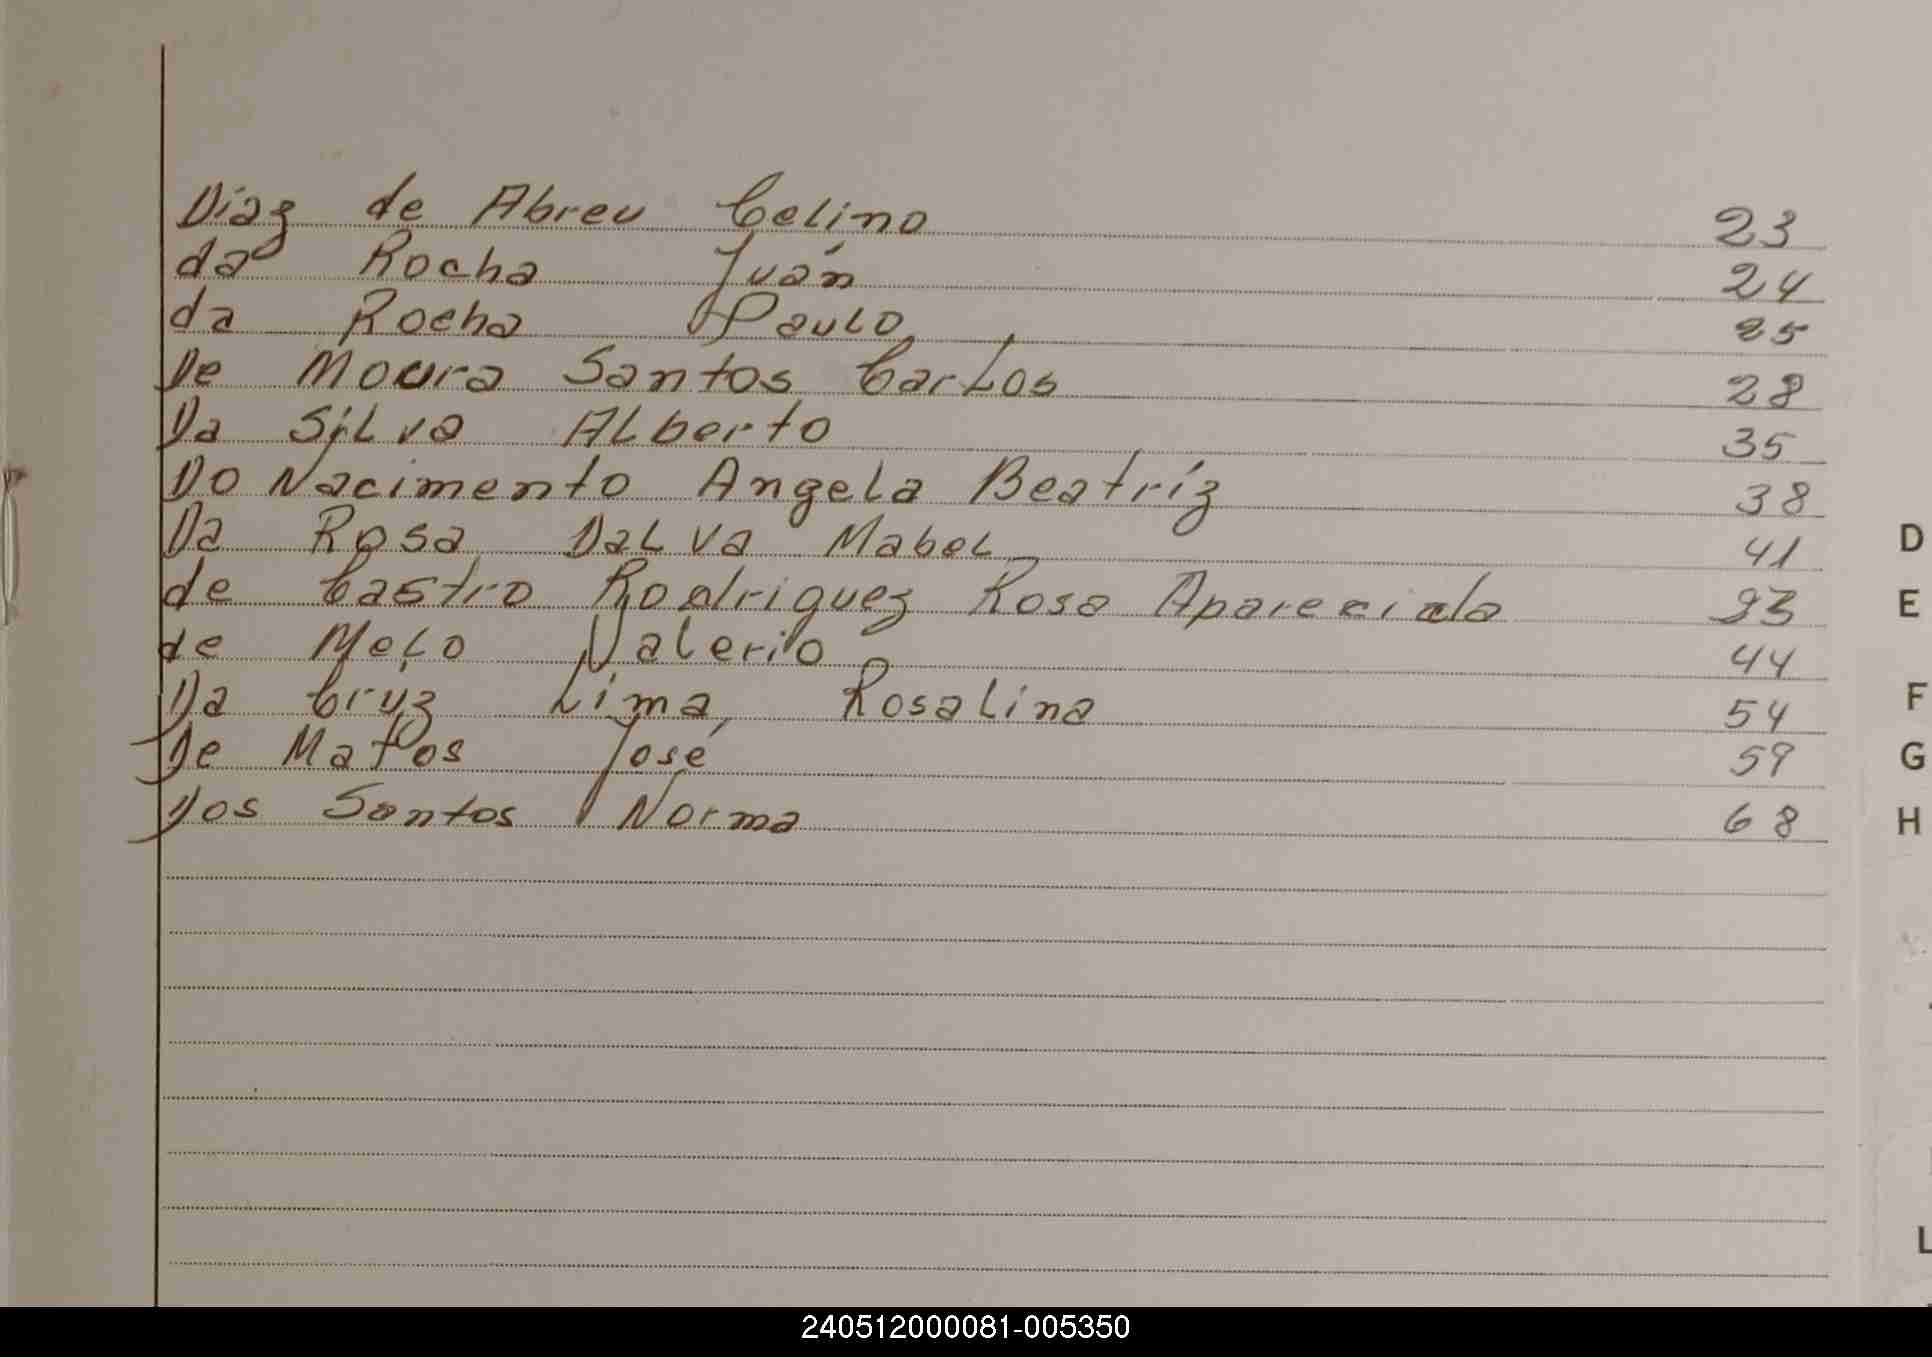 Diaz de Abreu Celino 23
da Rocha Juan 24
da Rocha Paulo 25
De Moura Santos Carlos 28
Da Silva Alberto 35
Do Nacimento Angela Beatríz 38
Da Rosa Dalva Mabel 41
de Castro Rodriguez Rosa Aparecida 93
de Melo Valerio 44
Da Cruz Lima, Rosalina 54
De Matos José 59
Dos Santos Norma 68
D
E
F
G
H
L
240512000081-005350